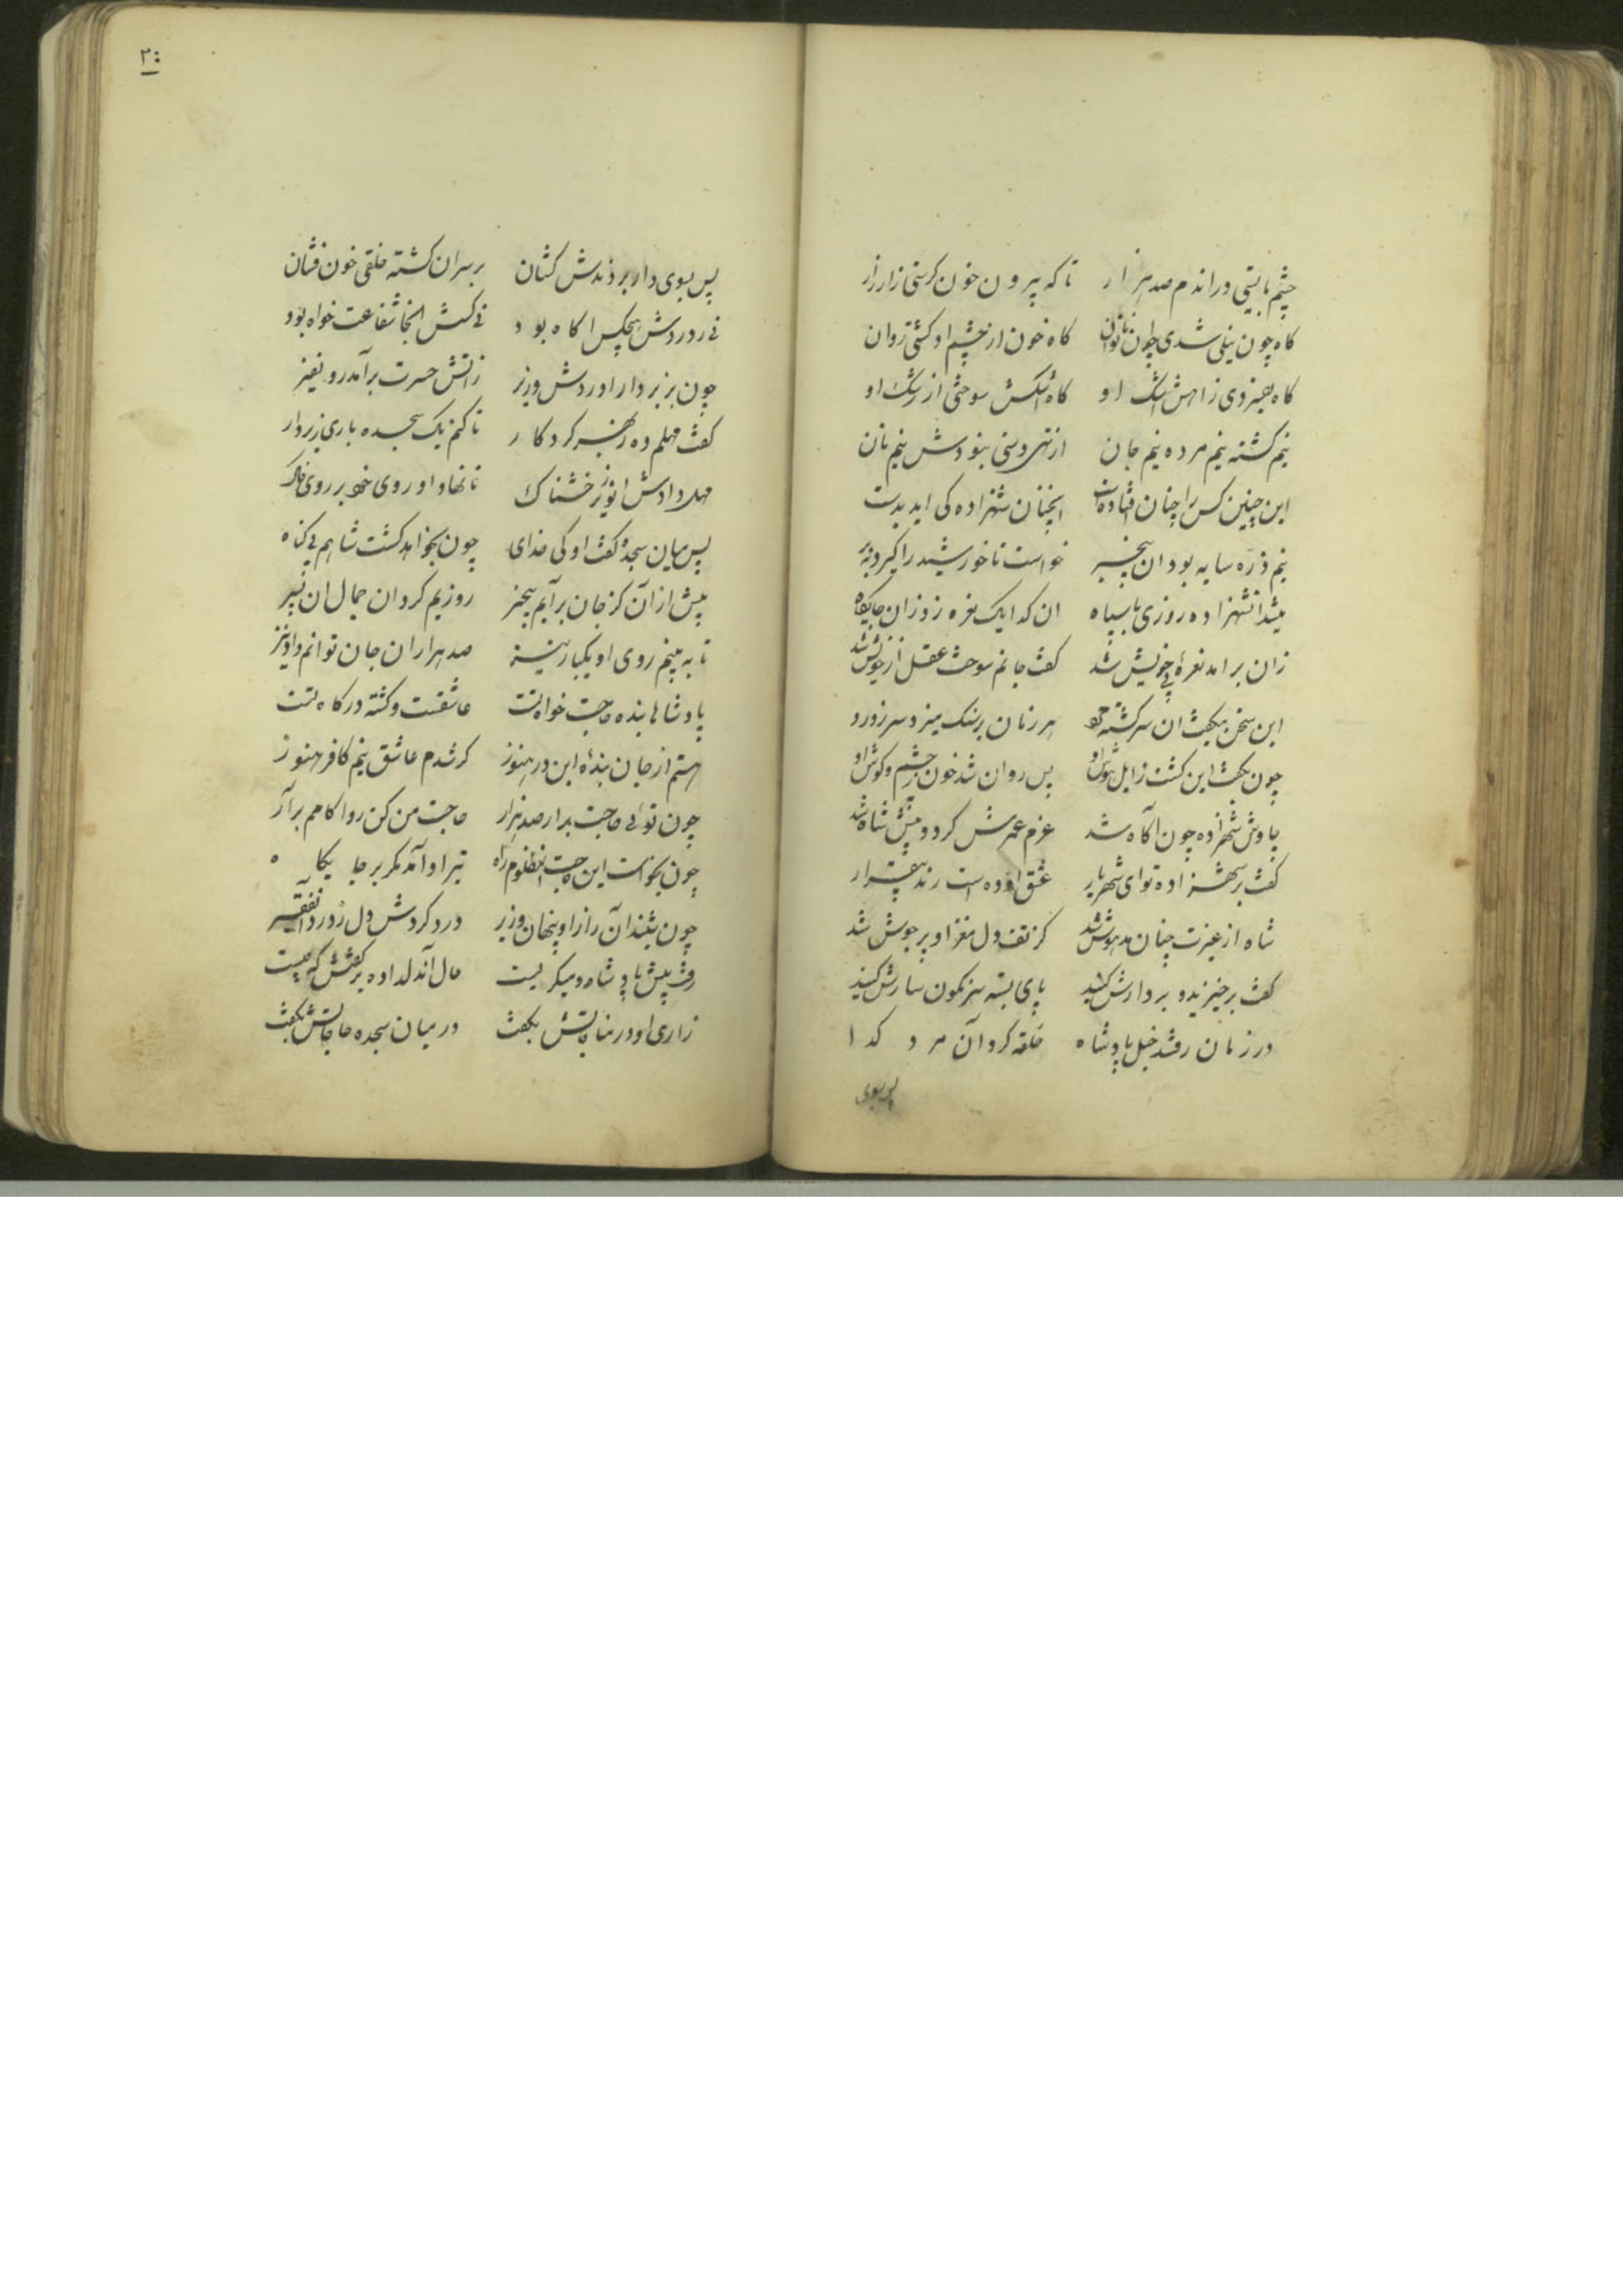 چشم بایستی در اندم صد هزار تا که بیرون خون کرستی زار زار
کاه چون نیلی شدی چون ناتوان کاه خون از چشم او کشتی روان
کاه بفسردی ز اهش اشک او کاه اشکش سوختی از رشک او
نیم کشته نیم مرده نیم جان از تهی دستی نبودش نیم نان
این چنین کس را چنان افتاده است انچنان شهزاده کی اید بدست
نیم ذره سایه بود ان بیخبر خواست تا خورشید را کیرد ببر
میشد انشهزاده روزی با سپاه ان کدا یک نعره زد زان جایکاه
زان برامد نعره بی خویش شد کفت جانم سوخت عقل از پیش شد
این سخن میکفت ان سرکشته مرد هر زمان بر سنک میزد سر ز درد
چون بکفت این کشت زایل هوش او پس روان شد خون ز چشم و کوش او
چاوش شهزاده چون آکاه شد عزم غمزش کرد و پیش شاه شد
کفت بر شهزاده تو ای شهریار عشق آورده است رندی بیقرار
شاه از غیرت چنان مدهوش شد کز تف دل مغز او پر جوش شد
کفت برخیزید و بر دارش کشید پای بسته سرنکون سارش کنید
در زمان رفتند خیل پادشاه حلقه کرد آن مرد کدا
پس بسوی
۲۰
پس بسوی دار بردندش کشان بر سر ان کشته خلقی خون فشان
نی ز دردش هیچکس اکاه بود نی کسش انجا شفاعت خواه بود
چون بزیر دار اوردش وزیر ز آتش حسرت برآمد زو نفیر
کفت مهلم ده ز بهر کردکار تا کنم یک سجده باری زیر دار
مهل دادش انوزیر خشمناک تا نهاد او روی خود بر روی خاک
پس میان سجده کفت او کی خدای چون بخواهد کشت شاهم بی کناه
پیش از آن کز جان برآیم بیخبر روزیم کردان جمال ان پسر
تا به بینم روی او یکبار نیز صد هزاران جان توانم داد نیز
پادشاها بنده حاجت خواه تست عاشقست و کشته درکاه تست
هستم از جان بنده این در هنوز کر شدم عاشق نیم کافر هنوز
چون توئی حاجت برار صد هزار حاجت من کن روا کامم برآر
چون بخواست این حاجت انمظلوم راه تیر او آمد مکر بر جایکاه
چون شنید آن راز او پنهان وزیر درد کردش دل ز درد آن فقیر
رفت پیش پادشاه و میکریست حال آن دلداده بر کفتش که چیست
زاری او در مناجاتش بکفت در میان سجده حاجاتش بکفت